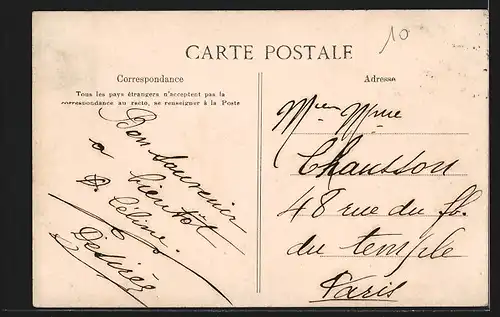 10
CARTE POSTALE
Correspondance
Tous les pays étrangers n'acceptent pas la
correspondance au recto, se renseigner à la Poste
Bon souvenir
a bientôt
Céline
Desirée
Adresse
Mme
Chausson
48 rue du fb.
du temple
Paris